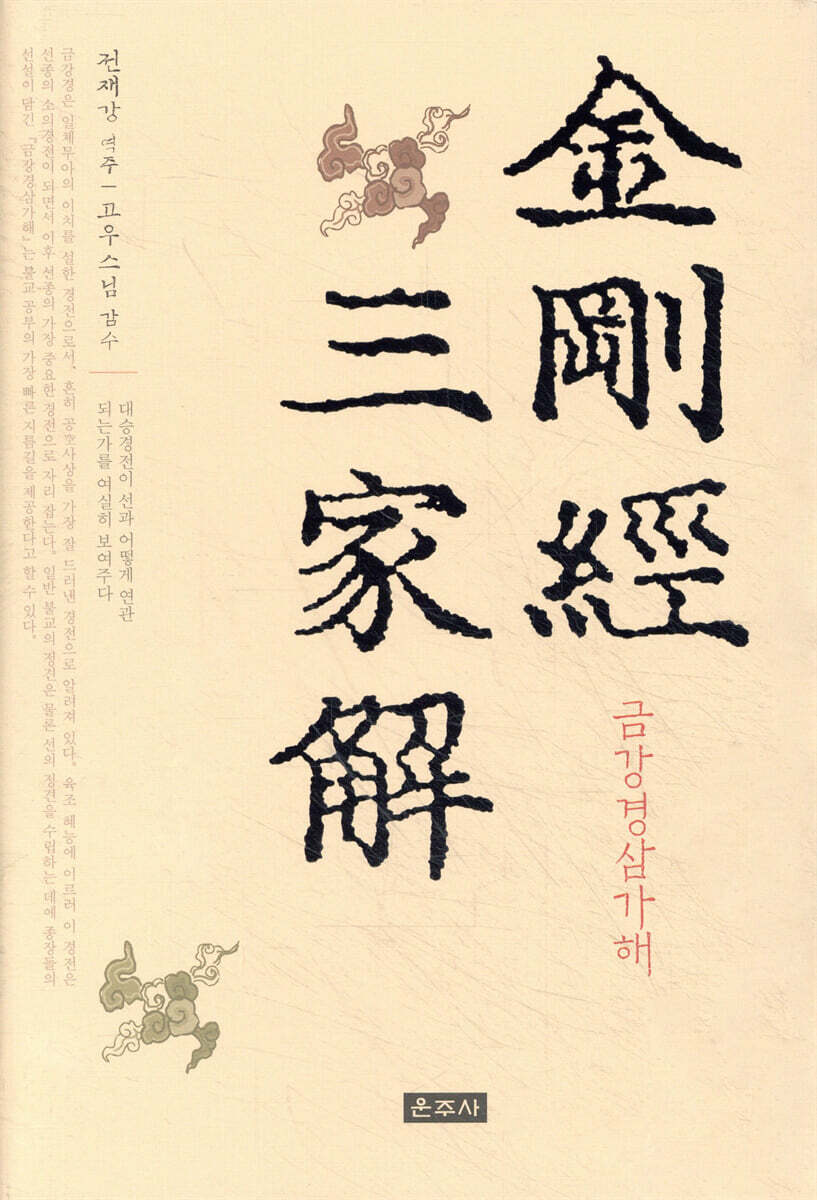 金剛經
금강경삼가해
三家解
대승경전이 선과 어떻게 연관
되는가를 여실히 보여주다
전재강 역주 - 고우스님 감수
금강경은 일체무아의 이치를 설한 경전으로서, 흔히 공空사상을 가장 잘 드러낸 경전으로 알려져 있다. 육조 혜능에 이르러 이 경전은
선종의 소의경전이 되면서 이후 선종의 가장 중요한 경전으로 자리 잡는다. 일반 불교의 정견은 물론 선의 정견을 수립하는 데에 종장들의
선설이 담긴 『금강경삼가해』는 불교 공부의 가장 빠른 지름길을 제공한다고 할 수 있다.
운주사